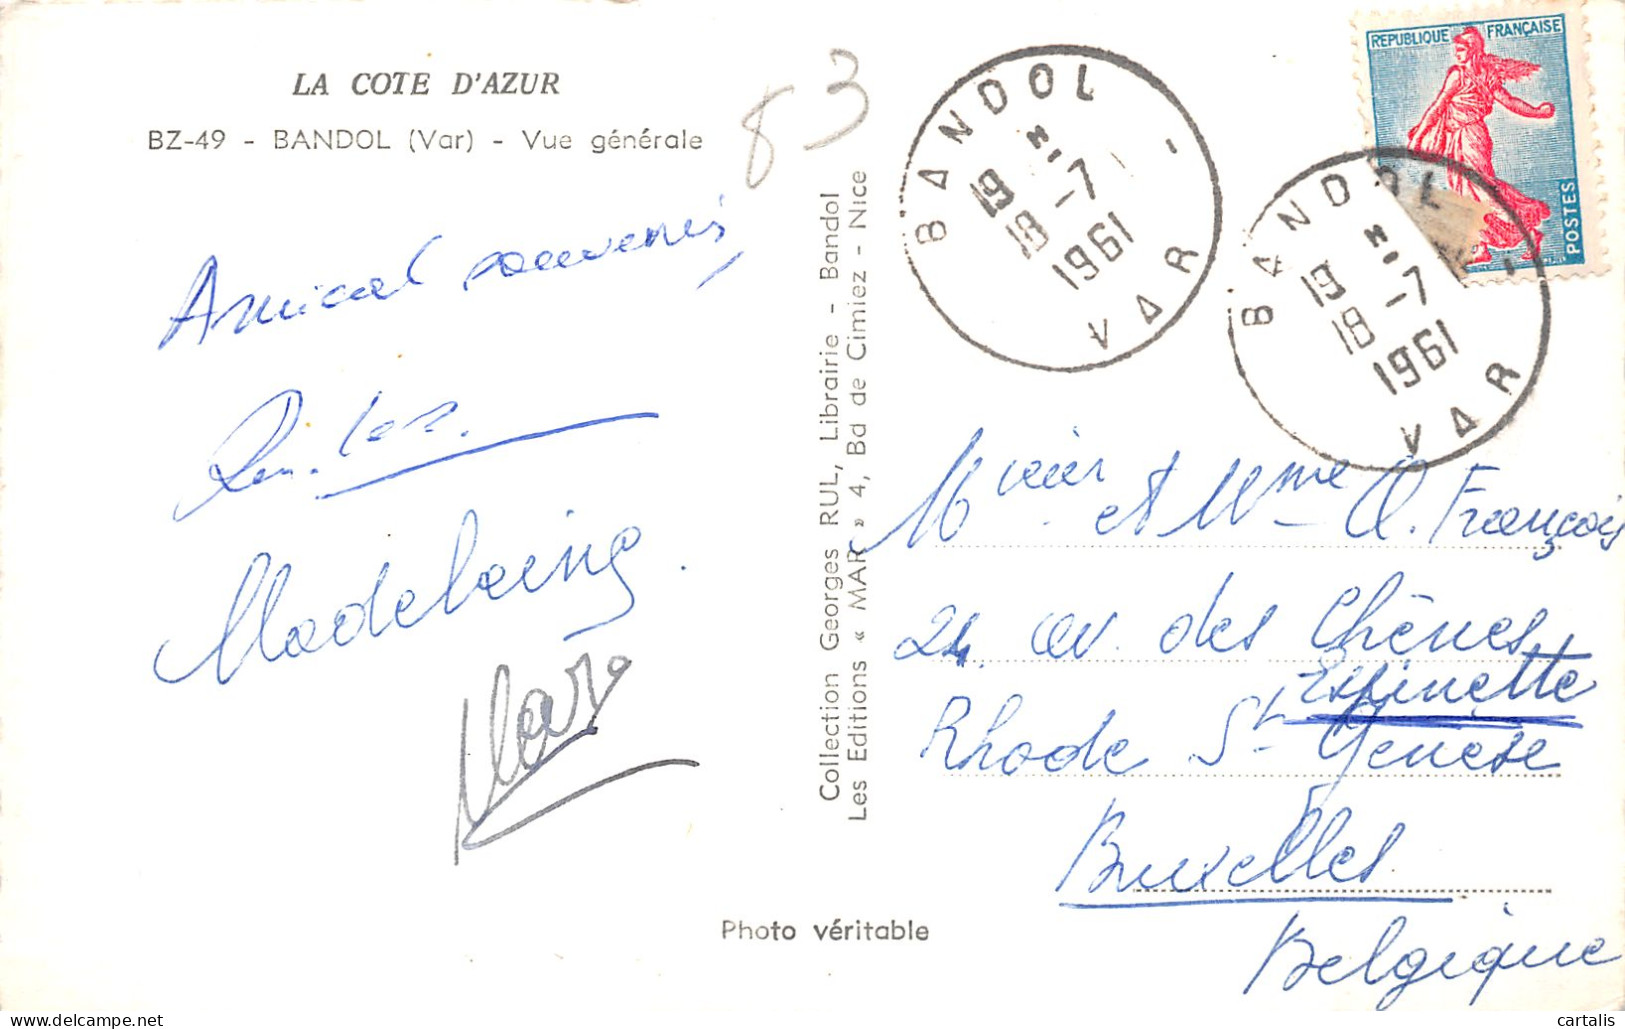 LA COTE D'AZUR
BZ-49 - BANDOL (Var) - Vue générale
83
Amical souvenir
Madeleine
Marc
Collection Georges RUL, Librairie - Bandol
Les Editions « MAR » 4, Bd de Cimiez - Nice
Photo véritable
BANDOL - VAR
19
18-7
1961
REPUBLIQUE FRANÇAISE
POSTES
BANDOL - VAR
19
18-7
1961
et Mme François
24 av. des Chênes
Espinette
Rhode St Genèse
Bruxelles
Belgique
cartalis